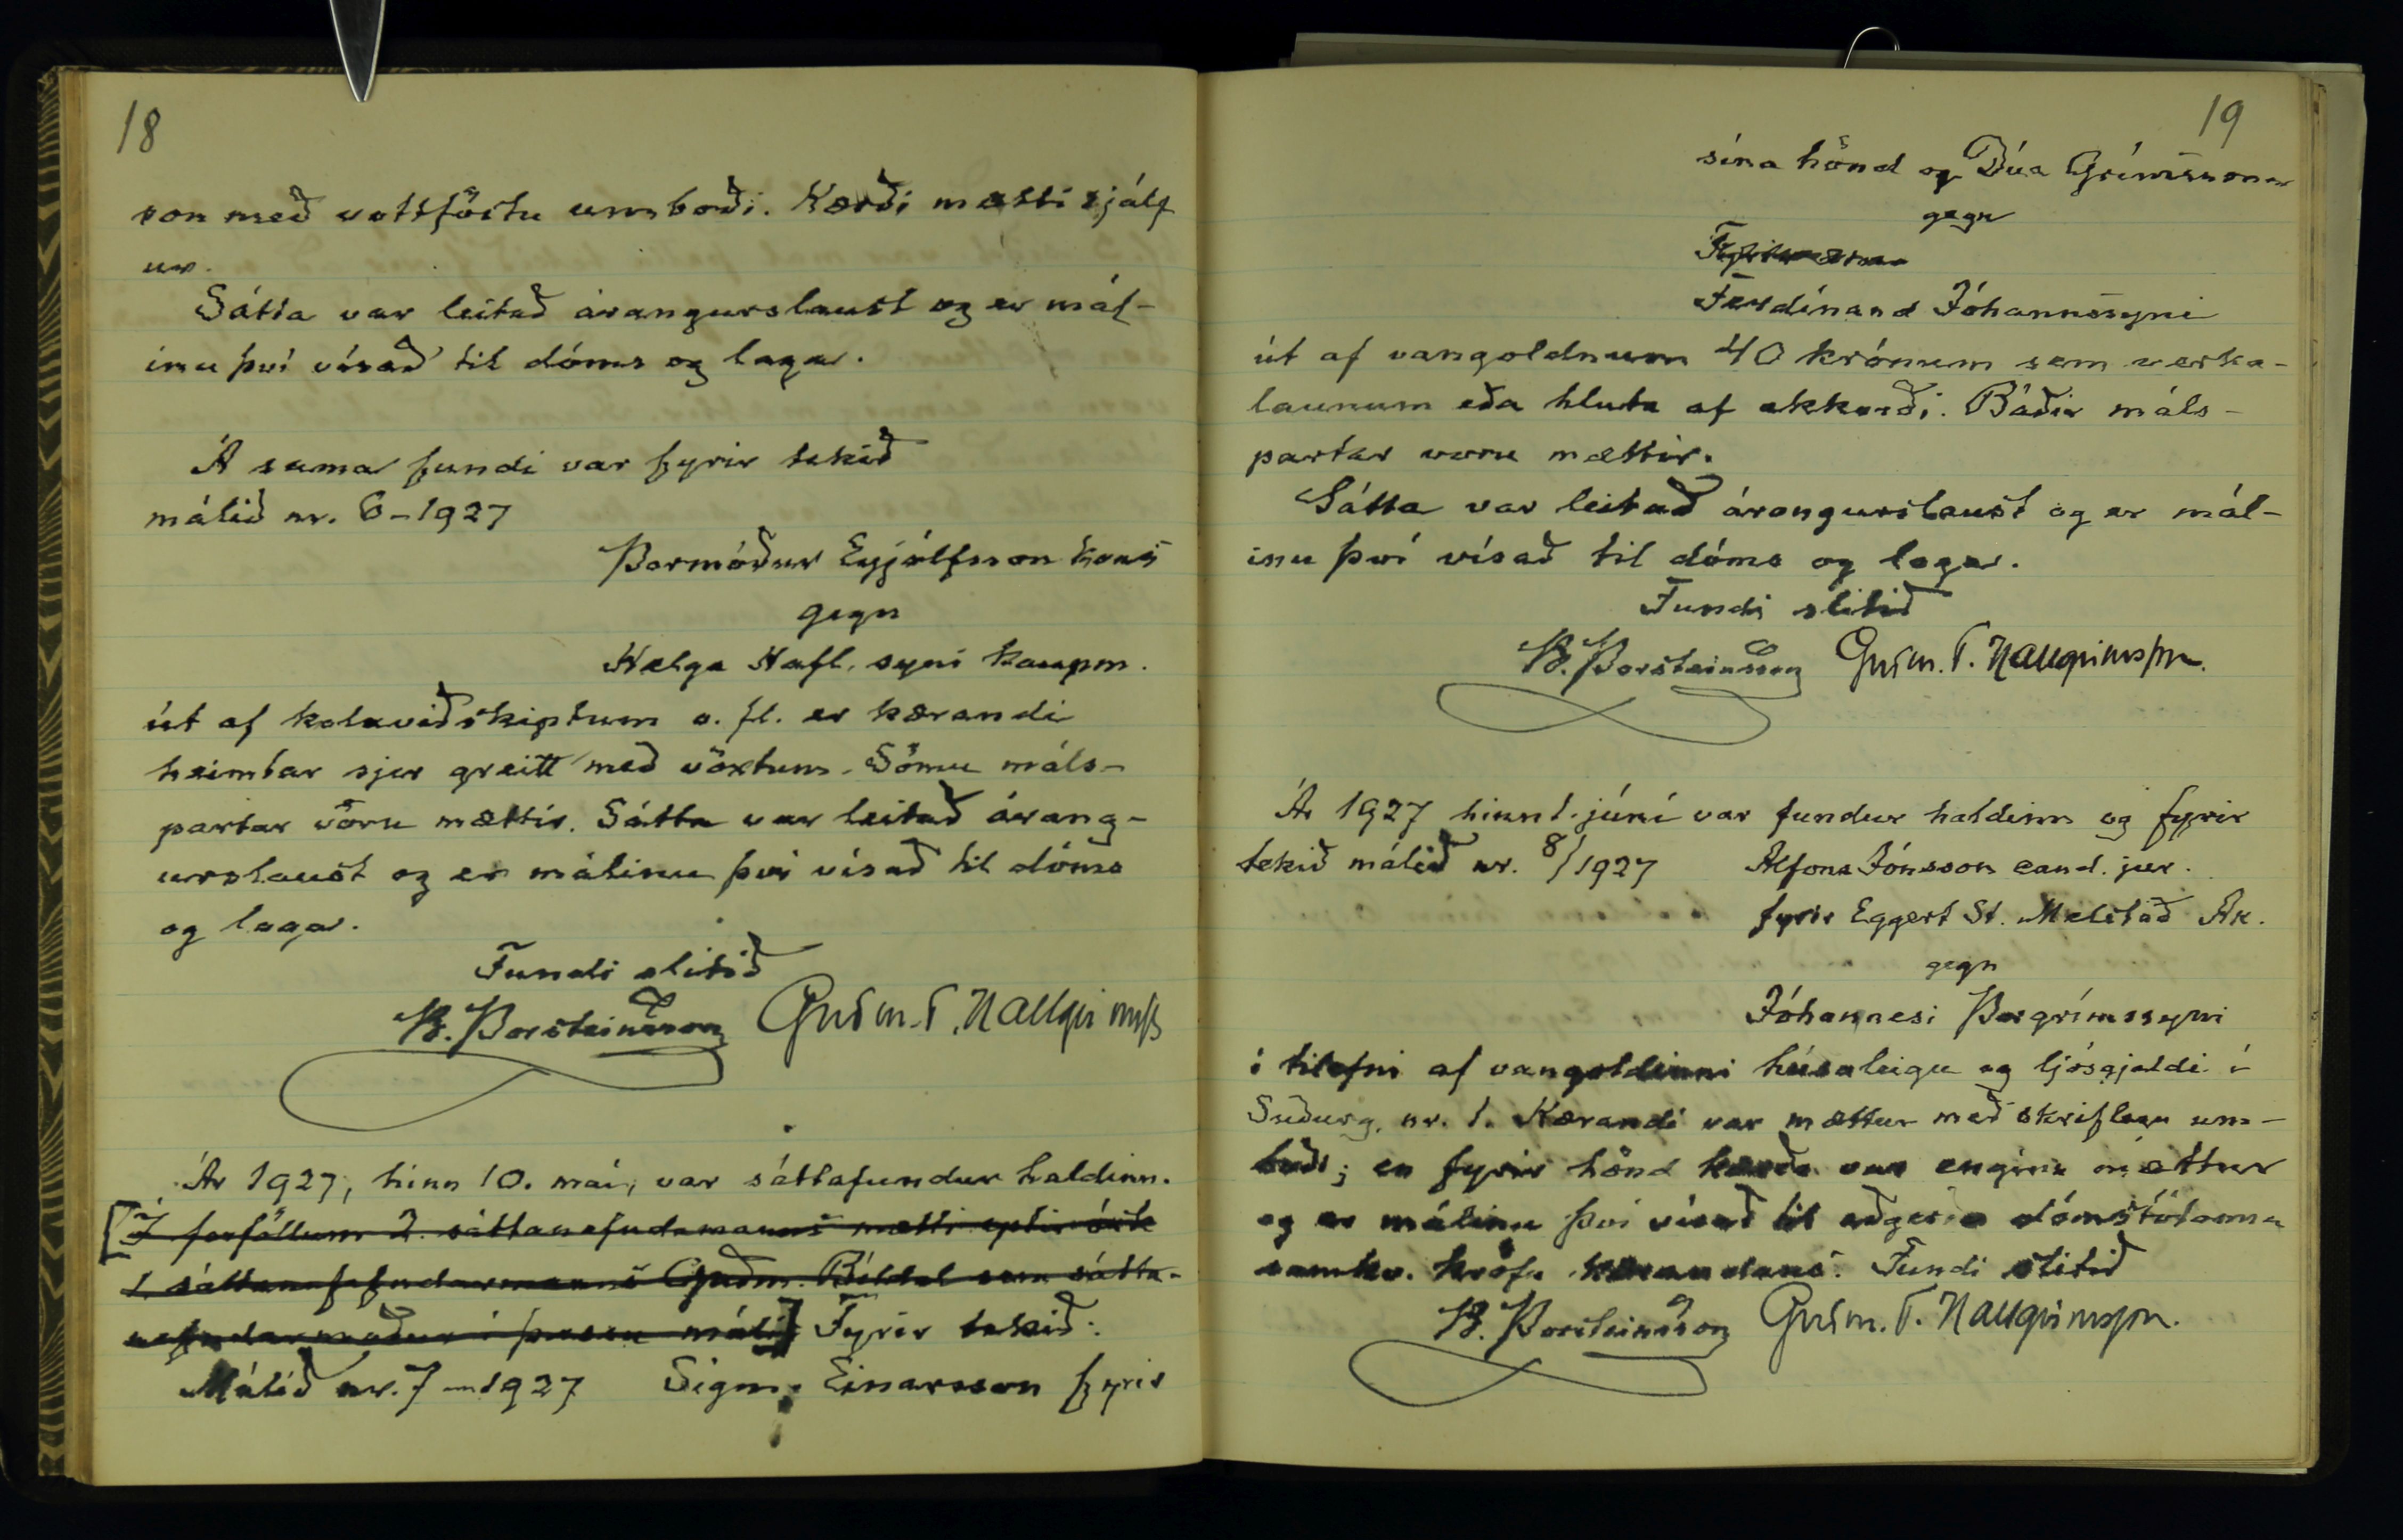 18
son með vottföstu umboði. Kærði mætti sjálf
ur.
Sátta var leitað árangurslaust og er mál-
inu því vísað til dóms og laga.
Á sama fundi var fyrir tekið
málið nr. 6-1927
Þormóður Eyjólfsson kons
gegn
Helga Hafl. syni kaupm.
út af kolaviðskiptum o. fl. er kærandi
heimtar sjer greitt með vöxtum. Sömu máls-
partar vóru mættir. Sátta var leitað árang-
urslaust og er málinu því vísað til dóms
og laga.
Fundi slitið
B. Þorsteinsson Guðm. T. Hallgrímss
Ár 1927, hinn 10. maí, var sáttafundur haldinn.
[Í forföllum 2. sáttanefndamanns mætti eptir ósk
1. sáttanefndarmanns Guðm. Bíldal sem sátta-
nefndarmaður í þessu máli] Fyrir tekið:
Málið nr. 7-1927 Sigm. Einarsson fyrir
19
sína hönd og Dúa Grímssonar
gegn
Ferdínand Jóhannssyni
út af vangoldnum 40 krónum sem verka-
launum eða hluta af akkorði. Báðir máls-
partar voru mættir.
Sátta var leitað árangurslaust og er mál-
inu því vísað til dóms og laga.
Fundi slitið
B. Þorsteinsson Guðm. T. Hallgrímsson.
Ár 1927 hinn 1. júní var fundur haldinn og fyrir
tekið málið nr. 8/1927 Alfons Jónsson cand. jur.
fyrir Eggert St. Melstað Ak.
gegn
Jóhannesi Þorgrímssyni
í tilefni af vangoldinni húsaleigu og ljósgjaldi í
Suðurg. nr. 1. Kærandi var mættur með skriflegu um-
boði; en fyrir hönd kærða var enginn mættur
og er málinu því vísað til aðgerða dómstólanna
samkv. kröfu kærandans. Fundi slitið
B. Þorsteinsson Guðm. T. Hallgrímsson.